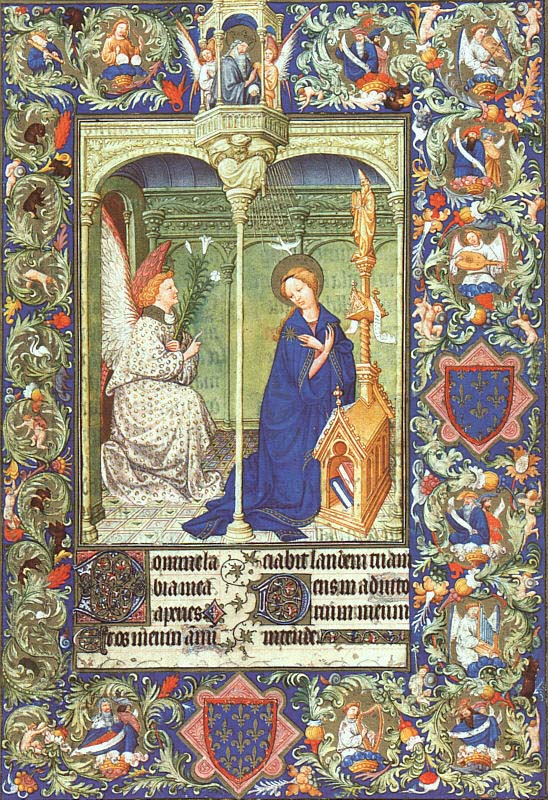 Domine la
bia mea
aperies
Et os meum anũ
ciabit laudem tuam
Deus in adiuto
rium meum
intende.